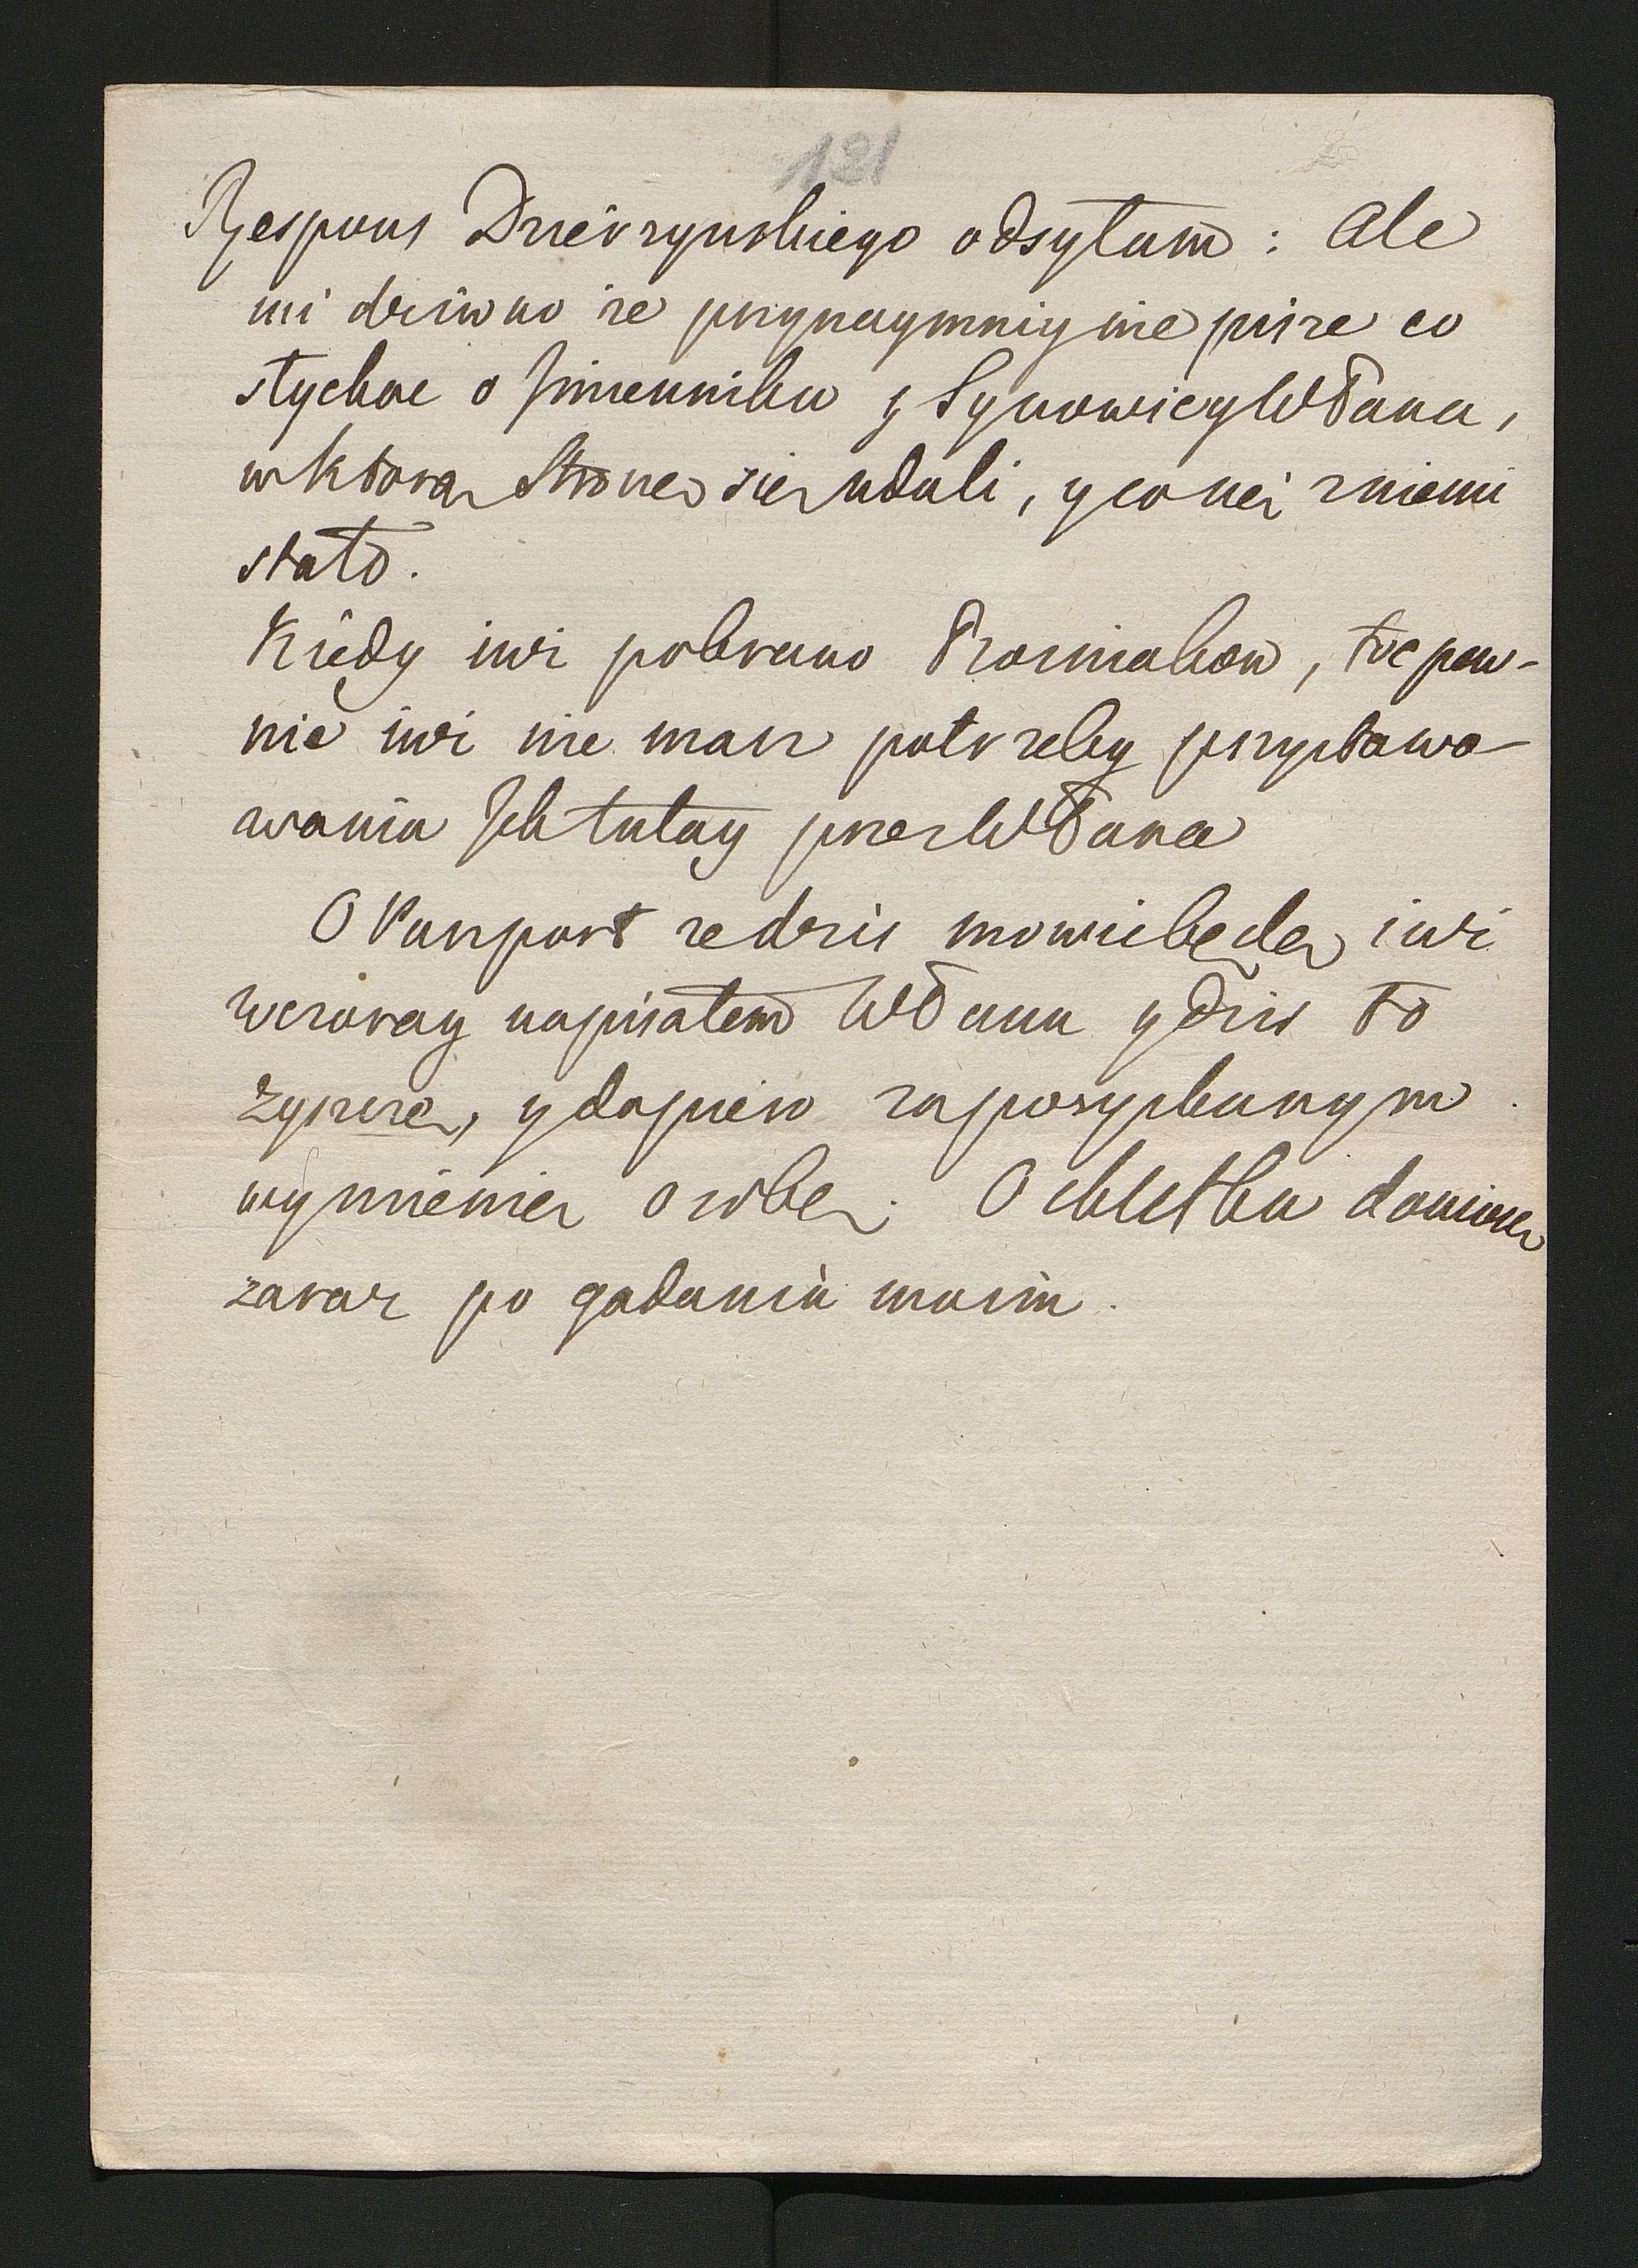 121
Respons Dzierzynskiego odsyłam: Ale
mi dziwno ze przynaymniy nie pisze co
słychac o Imienniku y Synowicy WPana,
w ktora Strone sie udali, y co sie z niemi
stało.
Kiedy iusz pobrano Prosniakow, toc pew-
nie iusz nie masz potrzeby przystawo-
wania Ich tutay przez WPana
O Paszport ze dzis mowic będe, iusz
wczoray napisałem WPanu y dzis to
zypisze, y dopiero zaposypkanym
wymienie osobe. O chlestku doniose
zaraz po gadaniu moim.